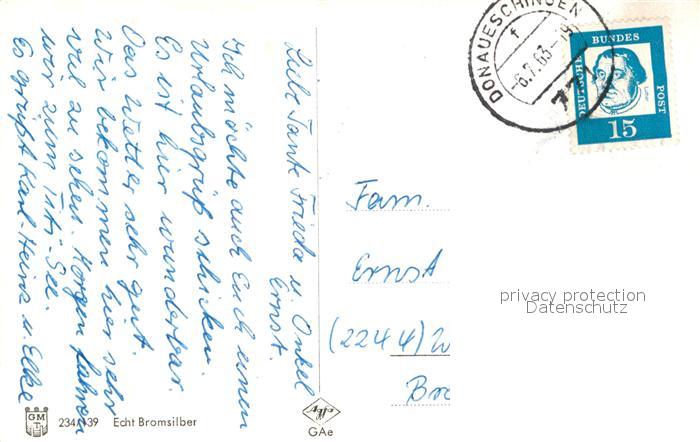 Liebe Tante Frieda u. Onkel
Ernst.
Ich möchte auch Euch einen
Urlaubsgruß schicken.
Es ist hier wunderbar.
Das Wetter sehr gut.
Wir bekommen hier sehr
viel zu sehen. Morgen fahren
wir zum Titi-See.
Es grüßt Karl-Heinz u. Elke
DONAUESCHINGEN
f
-6.7.63-19
77
DEUTSCHE BUNDES POST
15
Fam.
Ernst
(2244) W
Bre
privacy protection
Datenschutz
GMT
234/139 Echt Bromsilber
Agfa
GAe